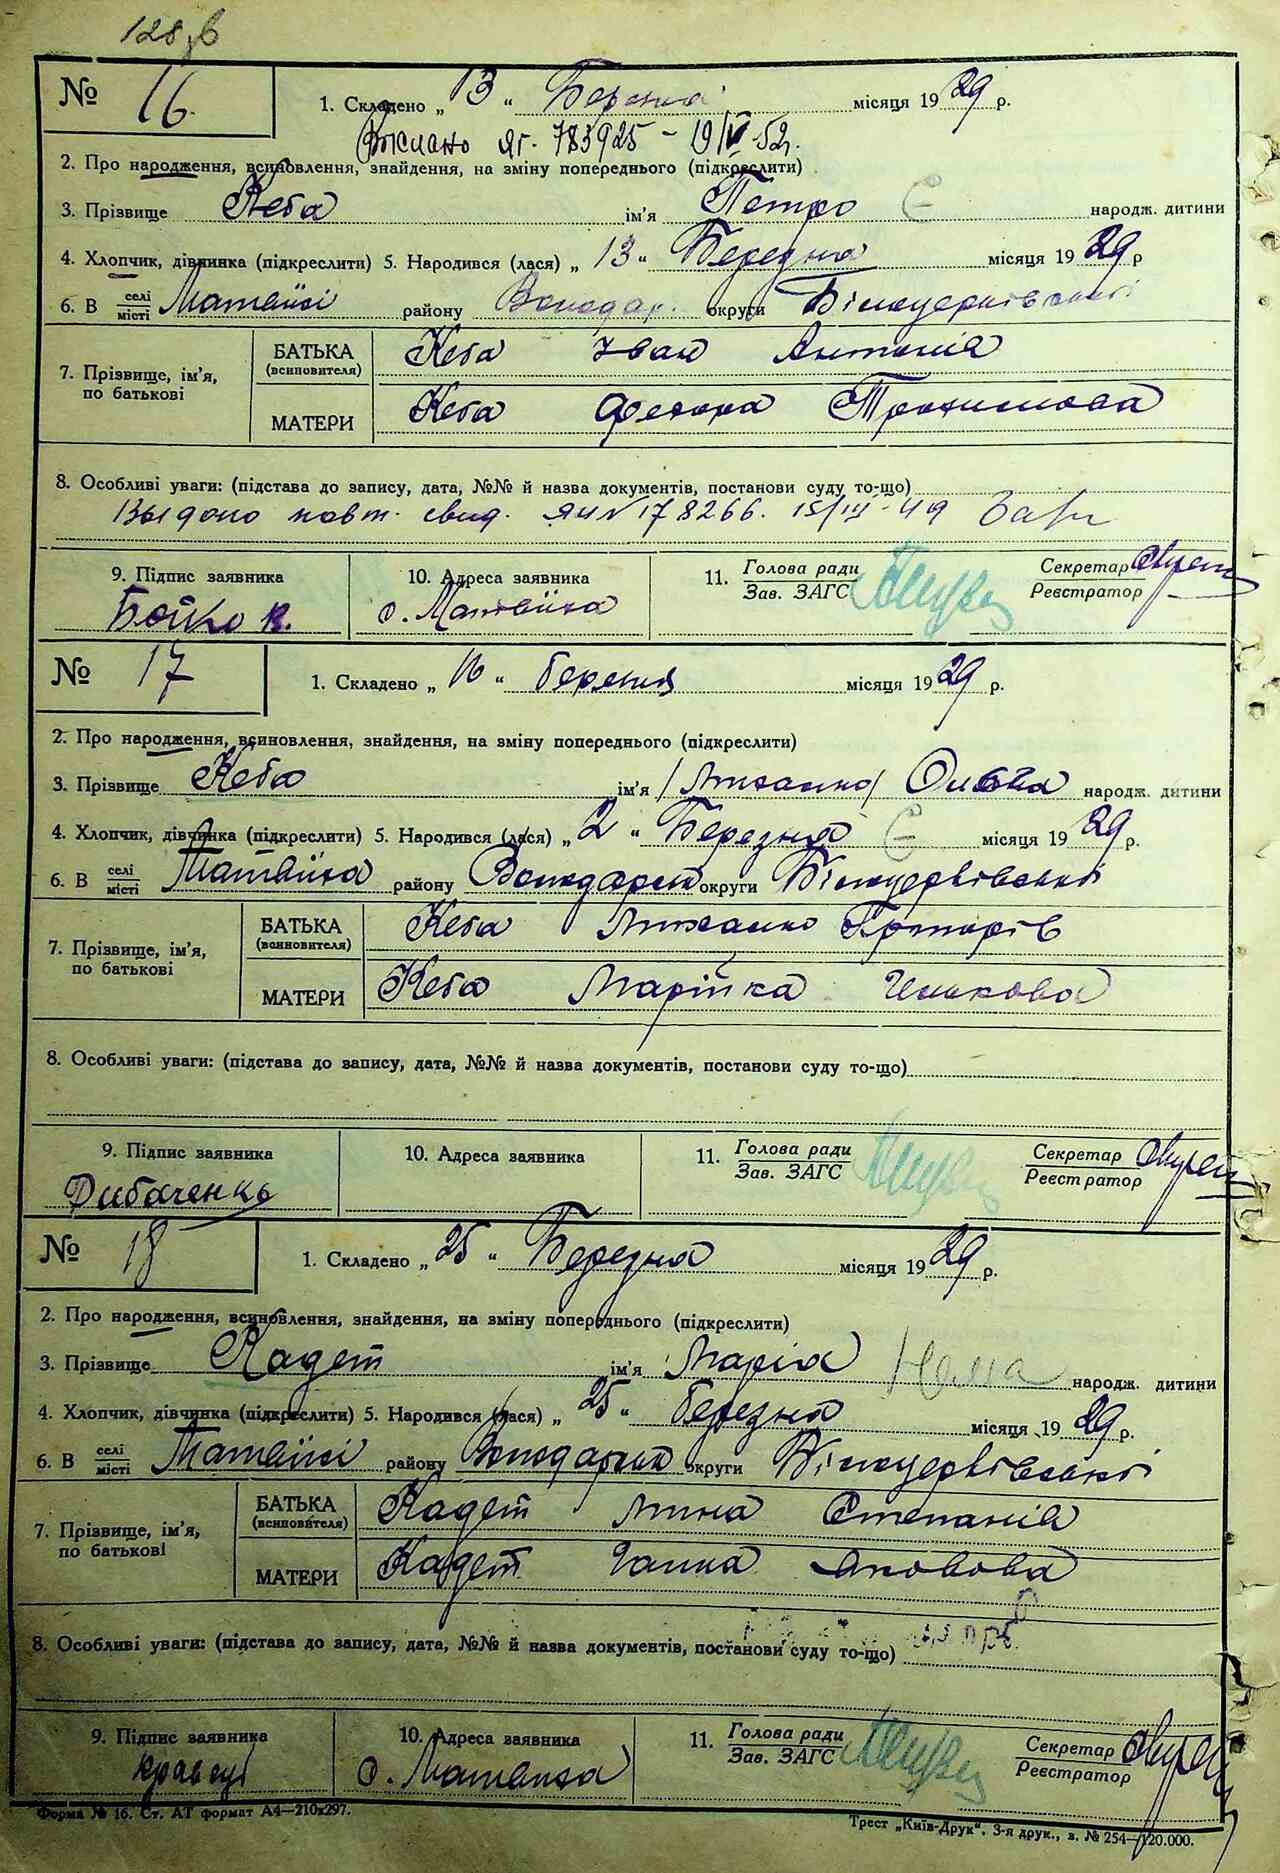 128 зв
№ 16.
1. Складено „ 13 “ Березня місяця 1929 р.
Выслано ЯГ. 783925 – 19/VI 52г.
2. Про народження, всиновлення, знайдення, на зміну попереднього (підкреслити)
3. Прізвище Кеба ім'я Петро Є народж. дитини
4. Хлопчик, дівчинка (підкреслити) 5. Народився (лася) „ 13 “ Березня місяця 1929 р
6. В селі місті Матвіїсі району Володар. округи Білоцерківської
7. Прізвище, ім'я, по батькові
БАТЬКА (всиновителя) Кеба Іван Антонів
МАТЕРИ Кеба Трохимова
8. Особливі уваги: (підстава до запису, дата, №№ й назва документів, постанови суду то-що)
Выдано повт. свид. ЯЧ № 178266. 15/III-49
9. Підпис заявника
10. Адреса заявника
11. Голова ради
Зав. ЗАГС
Секретар
Реєстратор
Бойко В.
с. Матвійха
№ 17
1. Складено „ 16 “ березня місяця 1929 р.
2. Про народження, всиновлення, знайдення, на зміну попереднього (підкреслити)
3. Прізвище Кеба ім'я народж. дитини
4. Хлопчик, дівчинка (підкреслити) 5. Народився (лася) „ 2 “ Березня Є місяця 1929 р.
6. В селі місті Матвіїха району Володарськ округи Білоцерківської
7. Прізвище, ім'я, по батькові
БАТЬКА (всиновителя) Кеба Григорів
МАТЕРИ Кеба Марійка
8. Особливі уваги: (підстава до запису, дата, №№ й назва документів, постанови суду то-що)
9. Підпис заявника
10. Адреса заявника
11. Голова ради
Зав. ЗАГС
Секретар
Реєстратор
Дибаченко
№ 18
1. Складено „ 25 “ Березня місяця 1929 р.
2. Про народження, всиновлення, знайдення, на зміну попереднього (підкреслити)
3. Прізвище Кадет ім'я Марія Нема народж. дитини
4. Хлопчик, дівчинка (підкреслити) 5. Народився (лася) „ 25 “ березня місяця 1929 р.
6. В селі місті Матвіїсі району Володарськ округи Білоцерківської
7. Прізвище, ім'я, по батькові
БАТЬКА (всиновителя) Кадет Мина Степанів
МАТЕРИ Кадет Ганна Яковова
8. Особливі уваги: (підстава до запису, дата, №№ й назва документів, постанови суду то-що)
9. Підпис заявника
10. Адреса заявника
11. Голова ради
Зав. ЗАГС
Секретар
Реєстратор
с. Матвійха
Форма № 16. Ст. АТ формат А4—210х297.
Трест „Київ-Друк“. 3-я друк., в. № 254—120.000.